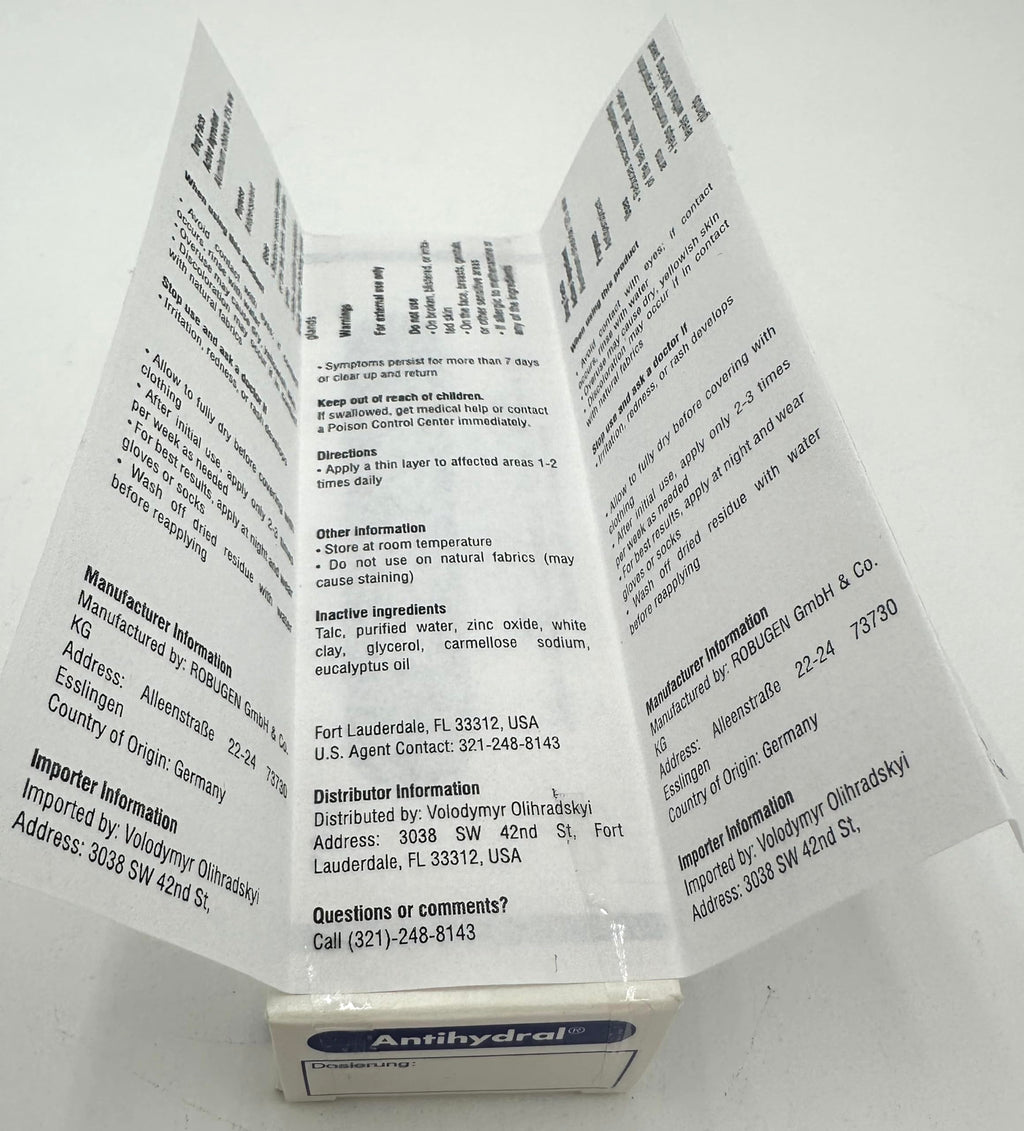 Drug Facts
When using this product
• Avoid contact with
occurs, rinse with
• Overuse may cause
• Discoloration may occur if
with natural fabrics
Stop use and ask a doctor if
• Irritation, redness, or rash develops
• Allow to fully dry before covering with
clothing
• After initial use, apply only 2-3 times
per week as needed
• For best results, apply at night and wear
gloves or socks
• Wash off dried residue with water
before reapplying
Manufacturer Information
Manufactured by: ROBUGEN GmbH & Co.
KG
Address: Alleenstraße 22-24 73730
Esslingen
Country of Origin: Germany
Importer Information
Imported by: Volodymyr Olihradskyi
Address: 3038 SW 42nd St,
glands
Warnings
For external use only
Do not use
• On broken, blistered, or irrita-
ted skin
• On the face, breasts, genitals
or other sensitive areas
• If allergic to methenamine or
any of the ingredients
• Symptoms persist for more than 7 days
or clear up and return
Keep out of reach of children.
If swallowed, get medical help or contact
a Poison Control Center immediately.
Directions
• Apply a thin layer to affected areas 1-2
times daily
Other information
• Store at room temperature
• Do not use on natural fabrics (may
cause staining)
Inactive ingredients
Talc, purified water, zinc oxide, white
clay, glycerol, carmellose sodium,
eucalyptus oil
Fort Lauderdale, FL 33312, USA
U.S. Agent Contact: 321-248-8143
Distributor Information
Distributed by: Volodymyr Olihradskyi
Address: 3038 SW 42nd St, Fort
Lauderdale, FL 33312, USA
Questions or comments?
Call (321)-248-8143
When using this product
• Avoid contact with eyes; if contact
occurs, rinse with water
• Overuse may cause dry, yellowish skin
• Discoloration may occur if in contact
with natural fabrics
Stop use and ask a doctor if
• Irritation, redness, or rash develops
• Allow to fully dry before covering with
clothing
• After initial use, apply only 2-3 times
per week as needed
• For best results, apply at night and wear
gloves or socks
• Wash off dried residue with water
before reapplying
Manufacturer Information
Manufactured by: ROBUGEN GmbH & Co.
KG
Address: Alleenstraße 22-24 73730
Esslingen
Country of Origin: Germany
Importer Information
Imported by: Volodymyr Olihradskyi
Address: 3038 SW 42nd St,
Antihydral®
Dosierung: